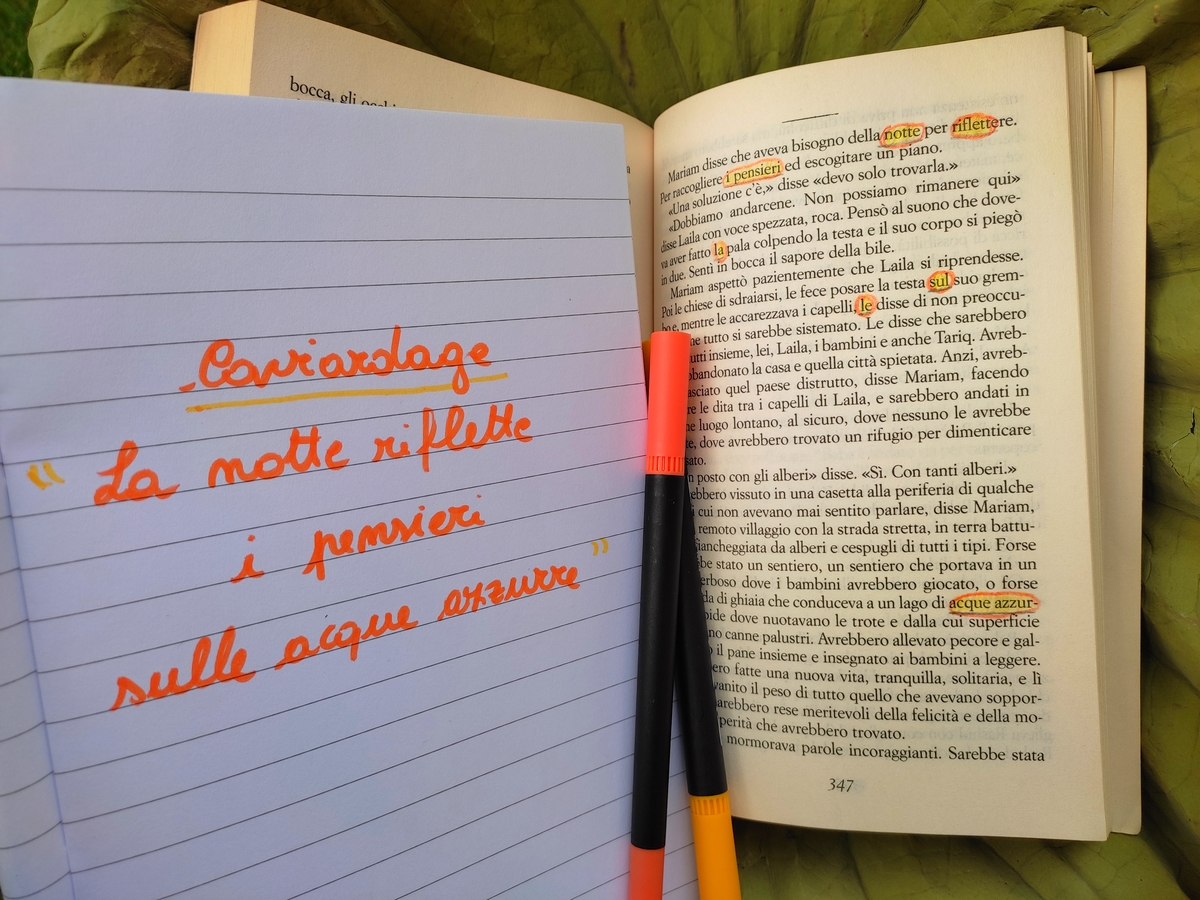 Caviardage
" La notte riflette
i pensieri
sulle acque azzurre "
bocca, gli occhi
Mariam disse che aveva bisogno della notte per riflettere.
Per raccogliere i pensieri ed escogitare un piano.
«Una soluzione c'è,» disse «devo solo trovarla.»
«Dobbiamo andarcene. Non possiamo rimanere qui»
disse Laila con voce spezzata, roca. Pensò al suono che dove-
va aver fatto la pala colpendo la testa e il suo corpo si piegò
in due. Sentì in bocca il sapore della bile.
Mariam aspettò pazientemente che Laila si riprendesse.
Poi le chiese di sdraiarsi, le fece posare la testa sul suo grem-
bo e, mentre le accarezzava i capelli, le disse di non preoccu-
tutto si sarebbe sistemato. Le disse che sarebbero
insieme, lei, Laila, i bambini e anche Tariq. Avreb-
la casa e quella città spietata. Anzi, avreb-
quel paese distrutto, disse Mariam, facendo
le dita tra i capelli di Laila, e sarebbero andati in
luogo lontano, al sicuro, dove nessuno le avrebbe
dove avrebbero trovato un rifugio per dimenticare
posto con gli alberi» disse. «Sì. Con tanti alberi.»
vissuto in una casetta alla periferia di qualche
cui non avevano mai sentito parlare, disse Mariam,
remoto villaggio con la strada stretta, in terra battu-
fiancheggiata da alberi e cespugli di tutti i tipi. Forse
stato un sentiero, un sentiero che portava in un
dove i bambini avrebbero giocato, o forse
di ghiaia che conduceva a un lago di acque azzur-
dove nuotavano le trote e dalla cui superficie
canne palustri. Avrebbero allevato pecore e gal-
il pane insieme e insegnato ai bambini a leggere.
fatte una nuova vita, tranquilla, solitaria, e lì
il peso di tutto quello che avevano soppor-
rese meritevoli della felicità e della mo-
che avrebbero trovato.
mormorava parole incoraggianti. Sarebbe stata
347